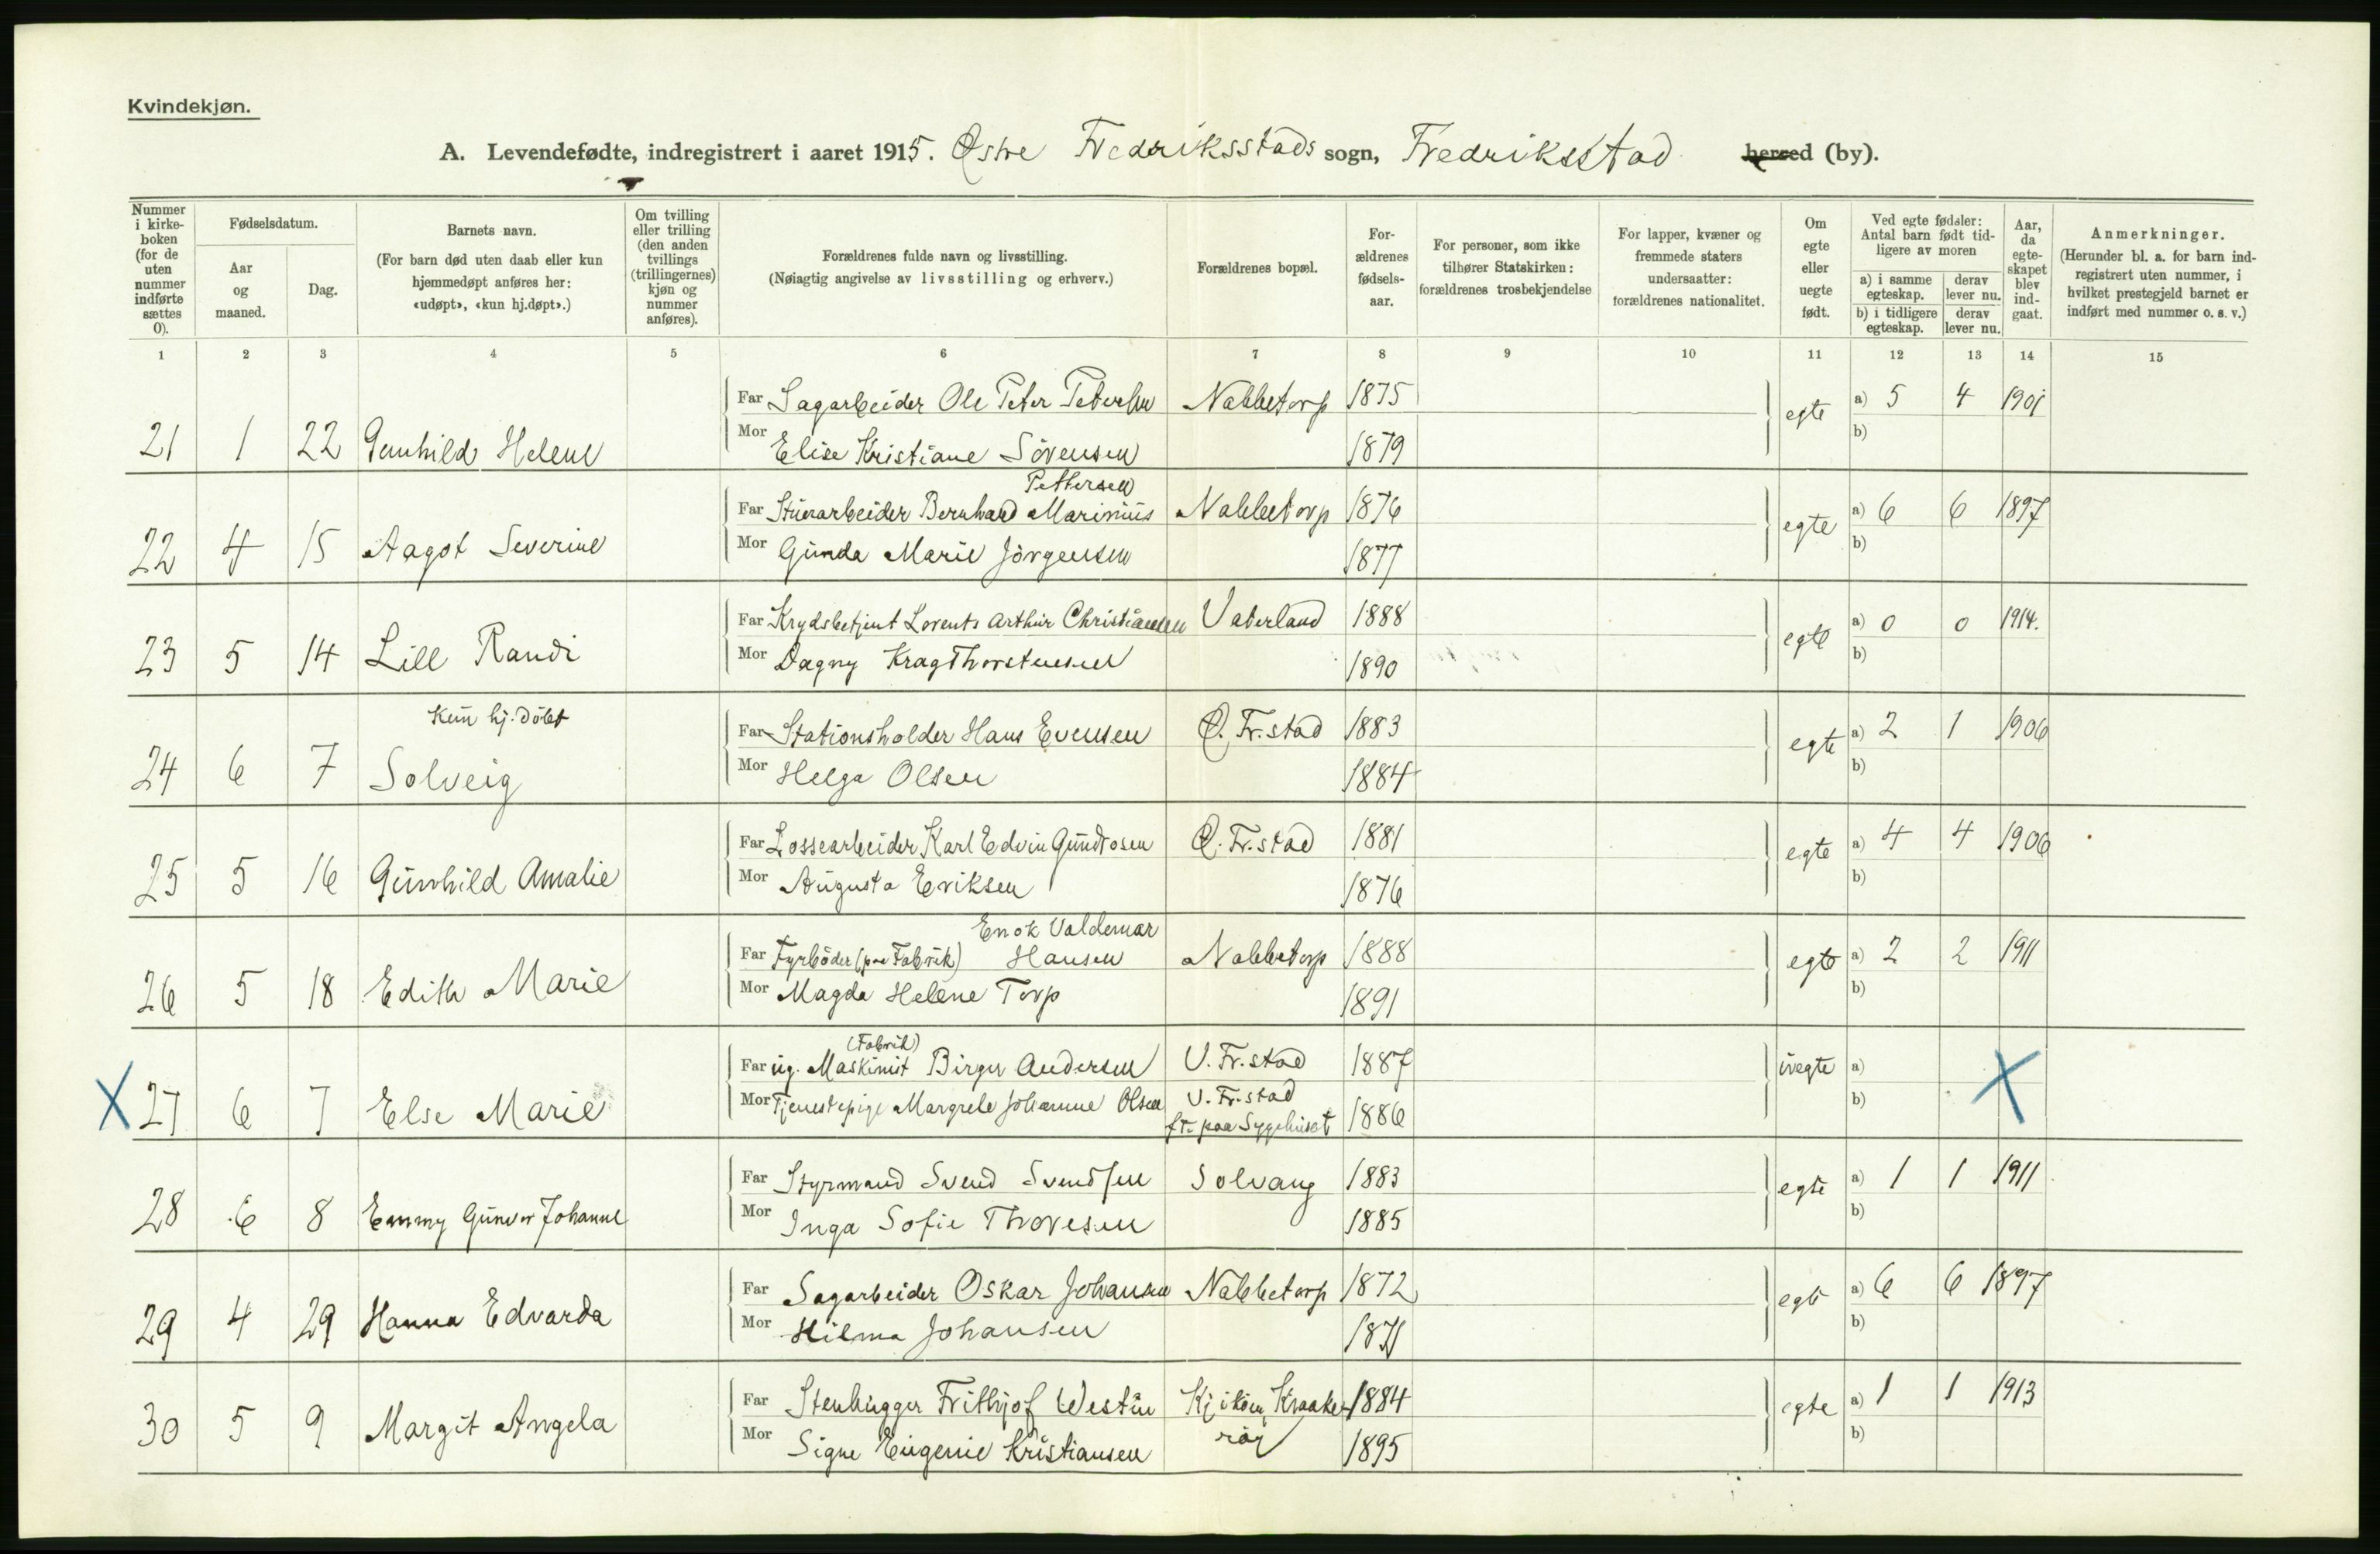 Kvindekjøn.
A. Levendefødte, indregistrert i aaret 1915. Østre Fredriksstads sogn, Fredriksstad herred (by).
Nummer i kirkeboken (for de uten nummer indførte sættes 0).
Fødselsdatum.
Aar og maaned.
Dag.
Barnets navn.
(For barn død uten daab eller kun hjemmedøpt anføres her: «udøpt», «kun hj.døpt».)
Om tvilling eller trilling (den anden tvillings (trillingernes) kjøn og nummer anføres).
Forældrenes fulde navn og livsstilling.
(Nøiagtig angivelse av livsstilling og erhverv.)
Forældrenes bopæl.
Forældrenes fødselsaar.
For personer, som ikke tilhører Statskirken: forældrenes trosbekjendelse
For lapper, kvæner og fremmede staters undersaatter: forældrenes nationalitet.
Om egte eller uegte født.
Ved egte fødsler: Antal barn født tidligere av moren
a) i samme egteskap. derav lever nu.
b) i tidligere egteskap. derav lever nu.
Aar, da egteskapet blev indgaat.
Anmerkninger.
(Herunder bl. a. for barn indregistrert uten nummer, i hvilket prestegjeld barnet er indført med nummer o. s. v.)
1 2 3 4 5 6 7 8 9 10 11 12 13 14 15
Far Sagarbeider Ole Peter Petersen Nabbetorp 1875 egte a) 5 4 1901
21 1 22 Gunhild Helene Mor Elise Kristiane Sörensen 1879 b)
Pettersen
Far Stuerarbeider Bernhard Marinius Nabbetorp 1876 egte a) 6 6 1897
22 4 15 Aagot Severine Mor Gunda Marie Jörgensen 1877 b)
Far Krydsbetjent Lorents Arthur Christiansen Vaterland 1888 egte a) 0 0 1914.
23 5 14 Lill Randi Mor Dagny Krag Thorstensen 1890 b)
Kun hj. döbt
Far Stationsholder Hans Evensen Ø. Fr.stad 1883 egte a) 2 1 1906
24 6 7 Solveig Mor Helga Olsen 1884 b)
Far Lossearbeider Karl Edvin Gundrosen Ø. Fr.stad 1881 egte a) 4 4 1906
25 5 16 Gunhild Amalie Mor Augusta Eriksen 1876 b)
Enok Valdemar
Far Fyrböder (paa Fabrik) Hansen Nabbetorp 1888 egte a) 2 2 1911
26 5 18 Edith Marie Mor Magda Helene Torp 1891 b)
(Fabrik)
Far ug. Maskinist Birger Andersen V. Fr.stad 1887 uegte a)
X 27 6 7 Else Marie Mor Tjenestepige Margrele Johanne Olsen V. Fr.stad 1886 b) X
ft. paa Sygehuset
Far Styrmand Svend Svendsen Solvang 1883 egte a) 1 1 1911
28 6 8 Emmy Gunvor Johanne Mor Inga Sofie Thoresen 1885 b)
Far Sagarbeider Oskar Johansen Nabbetorp 1872 egte a) 6 6 1897
29 4 29 Hanna Edvarda Mor Hilma Johansen 1871 b)
Far Stenhugger Frithjof Westin Kjiköen, Kraake- 1884 egte a) 1 1 1913
30 5 9 Margit Angela Mor Signe Eugenie Kristiansen röy 1895 b)